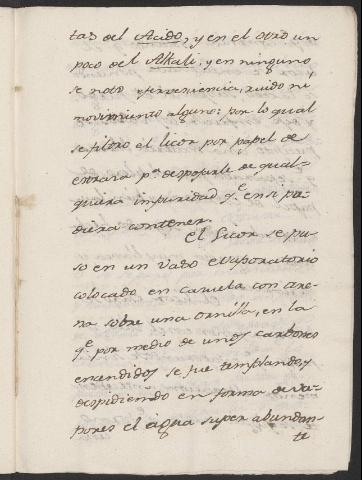 tas del Acido, y en el otro un
poco del Alkali, y en ninguno
se notó efervesencia, ruido ni
movimiento alguno: por lo qual
se filtro el licor por papel de
estraza pª. despojarle de qual-
quiera impuridad qᵉ. en si pu-
diera contener.
El Licor se pu-
so en un Vaso evaporatorio
colocado en cazuela con are-
na sobre una ornilla, en la
qᵉ. por medio de unos carbones
encendidos se fue templando, y
despidiendo en forma de va-
pores el agua super abundan-
te